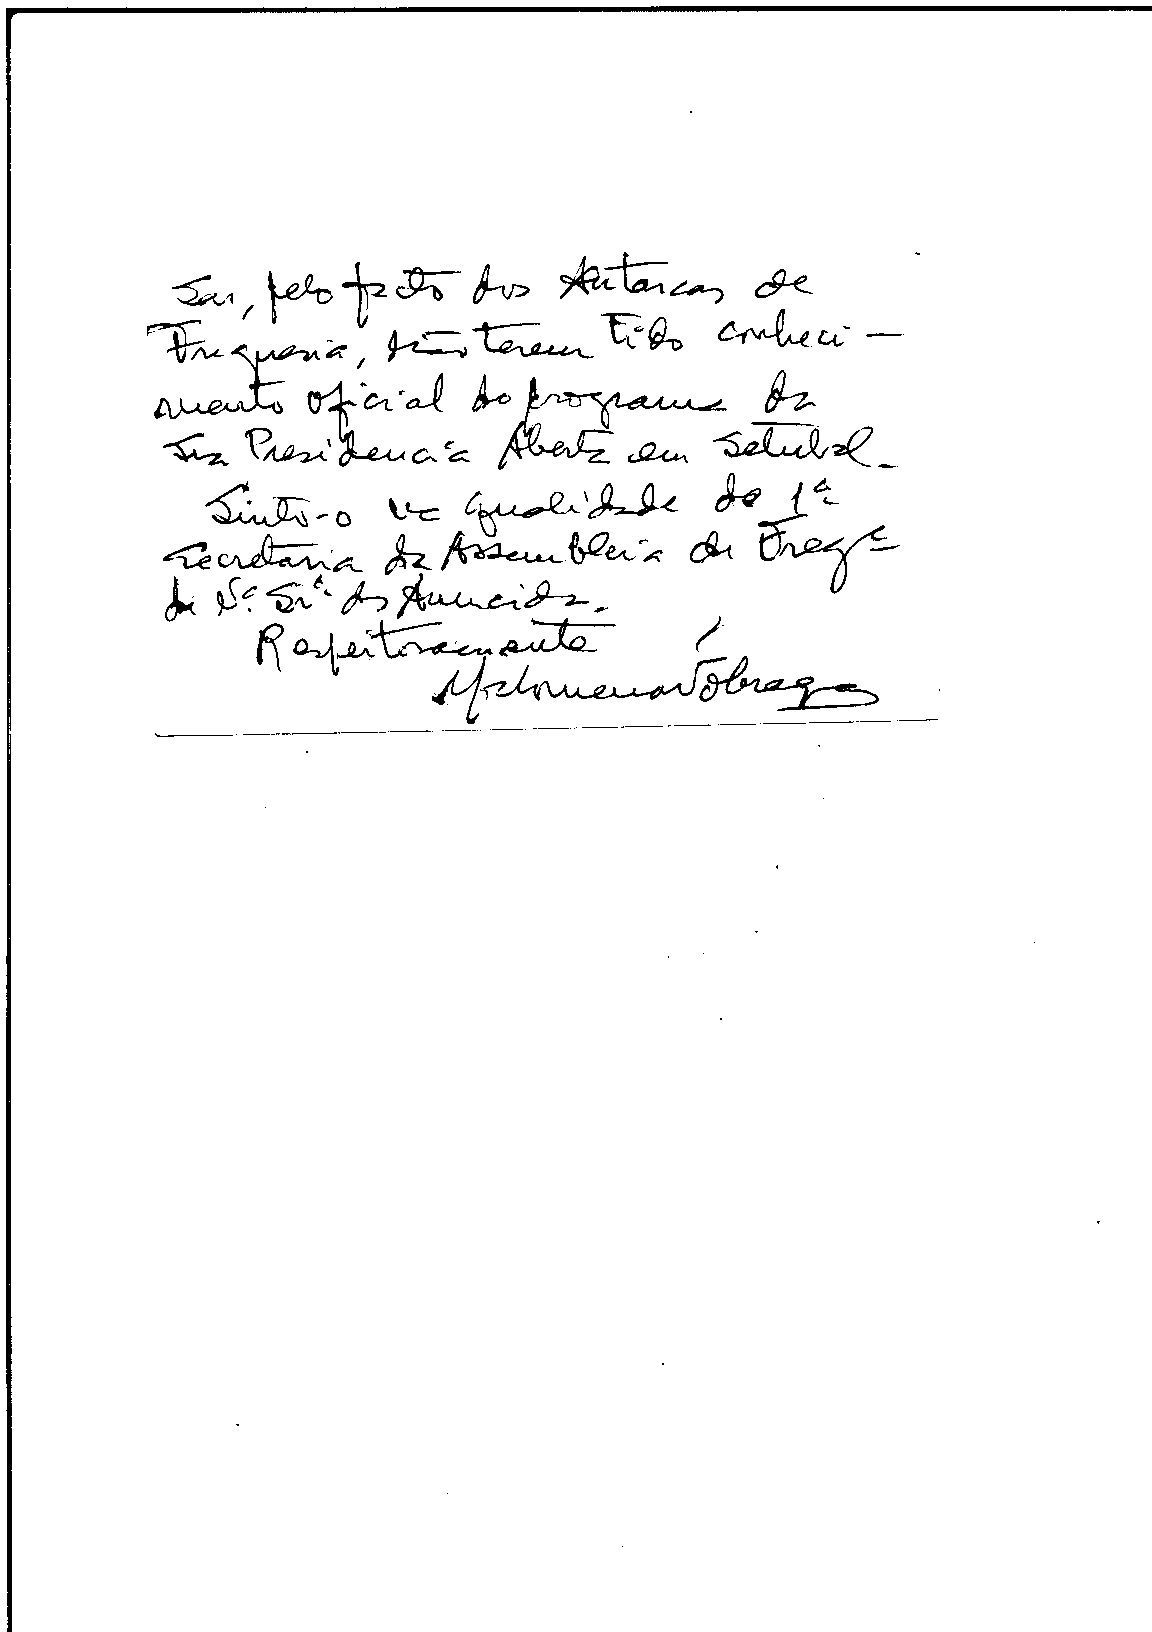 sar, pelo facto dos Autarcas de
Freguesia, não terem tido conheci-
mento oficial do programa da
sua Presidencia Aberta em Setubal.
Sinto-o na qualidade de 1ª
Secretária da Assembleia de Fregª
de Nª. Srª. da Anunciada.
Respeitosamente
Nóbrega